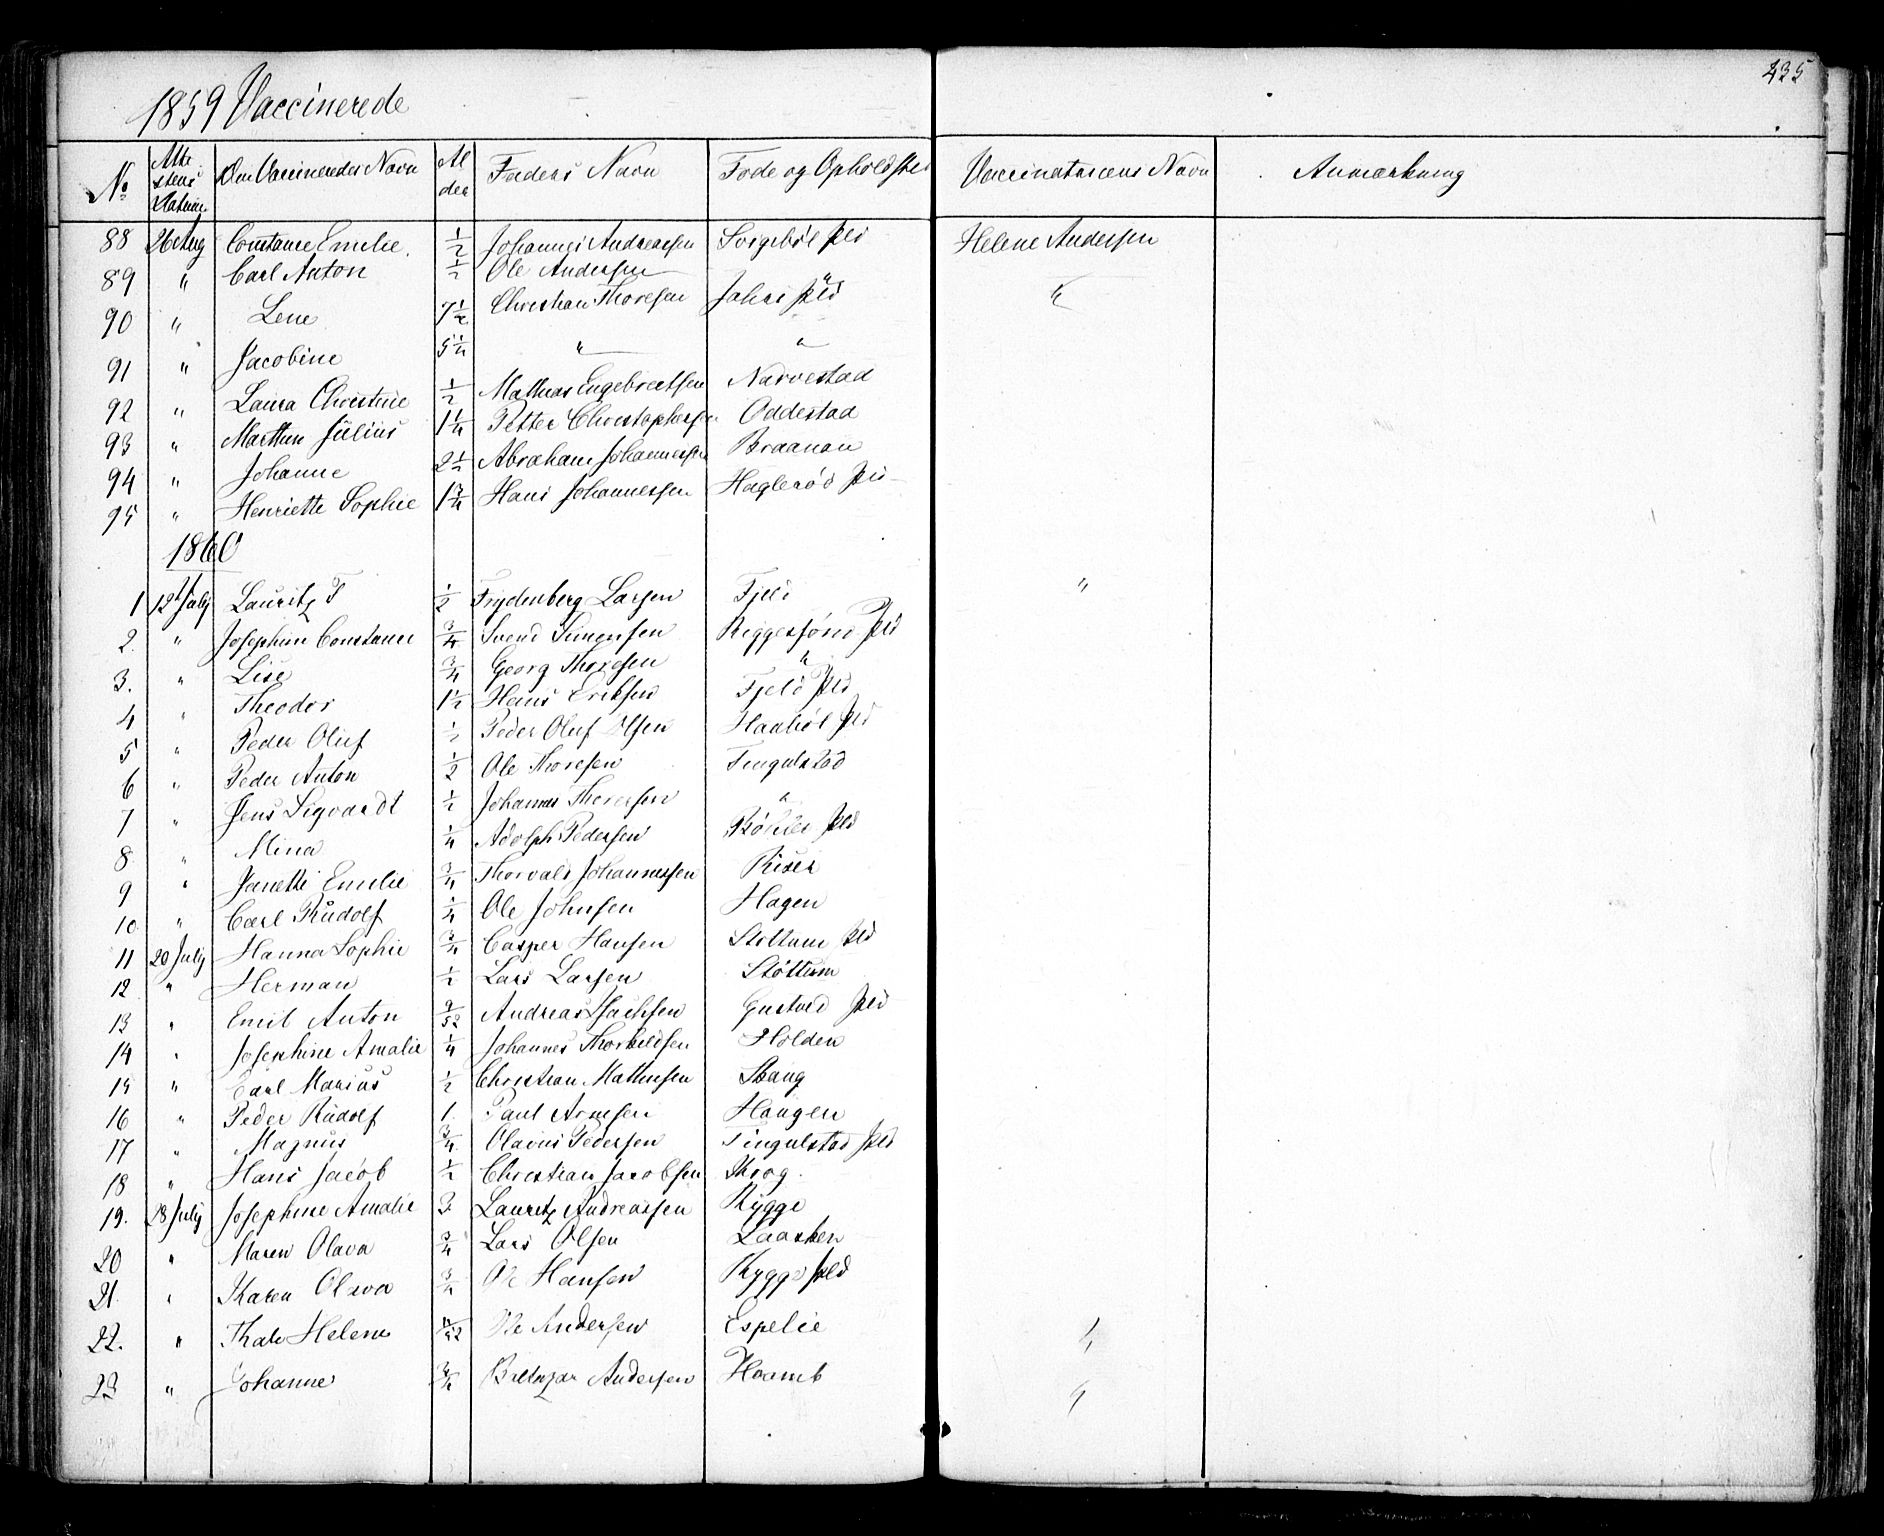 235
1859 Vaccinerede
No
Atte
stens
Datum
Den Vaccineredes Navn
Al
der
Faders Navn
Føde og Opholdsted
Vaccinatricens Navn
Anmærkning
88 26 Aug Constance Emilie 1/2 Johannes Andreassen Pld Helene Andersen
89 " Carl Anton 1/2 Ole Andersen "
90 " Lene 7 1/2 Christian Thoresen Pld "
91 " Jacobine 5 1/4 " "
92 " Laura Christine 1/2 Mathias Engebretsen Narvestad
93 " Marthin Julius 1 1/4 Petter Christophersen Oddestad
94 " Johanne 2 1/2 Abraham Johannessen Braanan
95 " Henriette Sophie 1 3/4 Hans Johannessen Haglerød Pld
1860
1 12 July Lauritz T 1/2 Frydenberg Larsen Fjeld "
2. " Josephine Constance 3/4 Svend Simensen Pld
3. " Lise 3/4 Georg Thoresen "
4 " Theodor 1 1/2 Hans Eriksen Fjeld Pld
5 " Peder Oluf 1/2 Peder Oluf Olsen Haabøl Pld
6 " Peder Anton 1/2 Ole Thoresen Tingulstad
7 " Jens Sigvardt 1/2 Johannes Thoresen "
8 " Mina 1/4 Adolph Pedersen Pld
9 " Janette Emilie 3/4 Thorvald Johannessen Riser
10. " Carl Rudolf 1/4 Ole Johnsen Hagen
11 20 July Hanna Sophie 3/4 Casper Hansen Støttum Pld
12 " Herman 1/2 Lars Larsen Støttum
13 " Emil Anton 9/52 Andreas Isachsen Pld
14 " Josephine Amalie 1/4 Johannes Thorkildsen Holden
15 " Carl Marius 1/2 Christian Mathisen Skaug
16 " Peder Rudolf 1. Paul Arnesen Haugen
17 " Magnus 3/4 Olavus Pedersen Tingulstad Pld
18 " Hans Jacob 1/2 Christian Jacobsen Krog.
19. 28 July Josephine Amalie 3. Lauritz Andreassen Rygge
20 " Maren Olava 3/4 Lars Olsen Laarken
21. " Karen Olava 3/4 Ole Hansen Rygge Pld
22. " Helene Ole Andersen Espelie "
23 " Johanne 3/4 Baltazar Andersen "